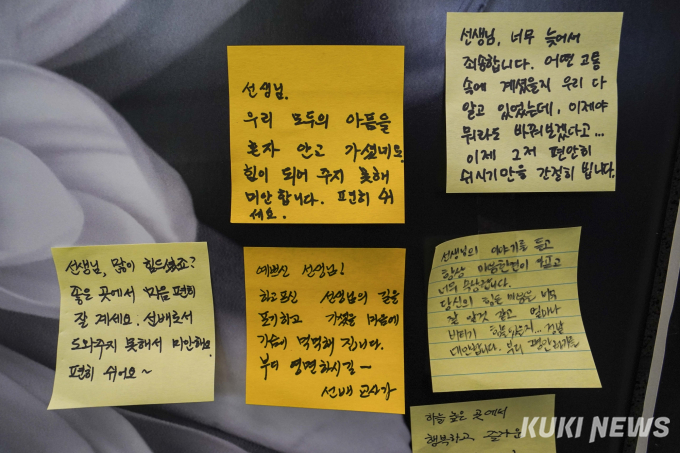 선생님, 너무 늦어서
죄송합니다. 어떤 고통
속에 계셨을지 우리 다
알고 있었는데, 이제야
뭐라도 바꿔보겠다고...
이제 그저 편안히
쉬시기만을 간절히 빕니다.
선생님.
우리 모두의 아픔을
혼자 안고 가셨네요.
힘이 되어 주지 못해
미안합니다. 편히 쉬
세요.
선생님, 많이 힘드셨죠?
좋은 곳에서 마음 편히
잘 계세요. 선배로서
도와주지 못해서 미안해요.
편히 쉬어요~
예쁘신 선생님!
하고프신 선생님의 길을
포기하고 가셨을 마음에
가슴이 먹먹해 집니다.
부디 영면하시길~
선배 교사가
선생님의 이야기를 듣고
항상 마음 한켠이 아프고
너무 속상합니다.
당신의 힘든 마음을 너무
잘 알것 같고 얼마나
버티기 힘들었을지... 정말
미안합니다. 부디 평안하기를
하늘 높은 곳에서
행복하고, 즐거운
KUKI NEWS